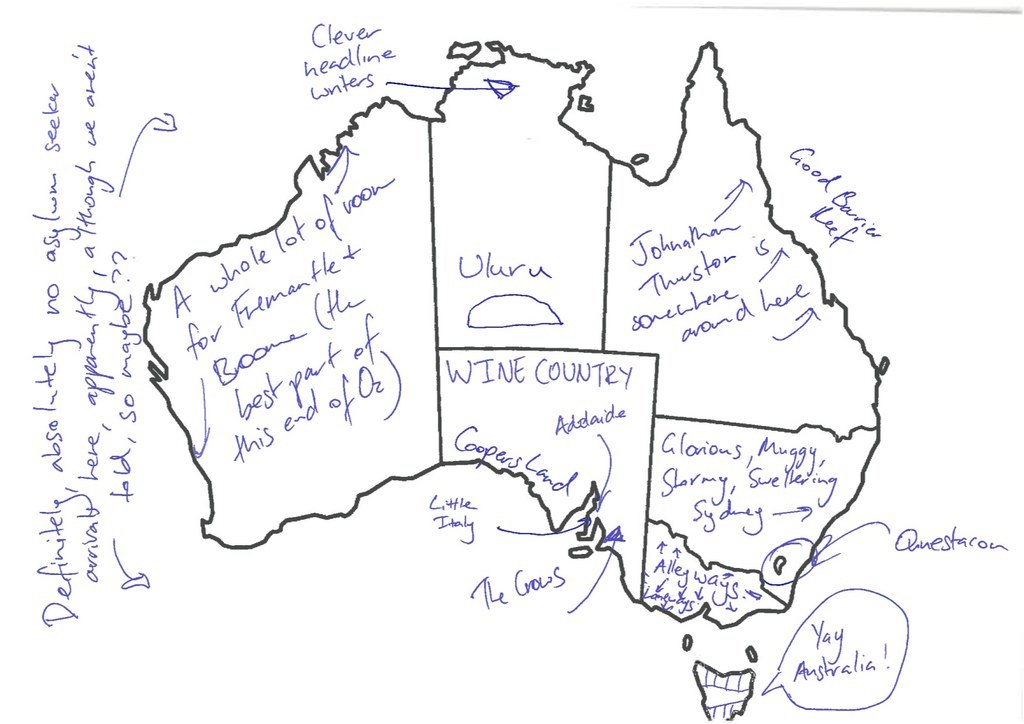 Clever
headline
writers
Definitely, absolutely no asylum seeker
arrivals here, apparently, although we aren't
told, so maybe??
A whole lot of room
for Fremantle +
Broome (the
best part of
this end of Oz)
Uluru
Good Barrier
Reef
Johnathan
Thurston is
somewhere
around here
WINE COUNTRY
Adelaide
Coopers Land
Little
Italy
The Crows
Glorious, Muggy,
Stormy, Sweltering
Sydney
Questacon
Alleyways
Laneways
Yay
Australia!